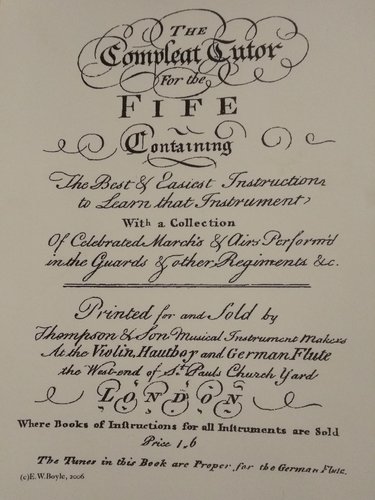 THE
Compleat Tutor
For the
FIFE
Containing
The Best & Easiest Instructions
to Learn that Instrument,
With a Collection
Of Celebrated March's & Airs Perform'd
in the Guards & other Regiments &c.
Printed for and Sold by
Thompson & Son Musical Instrument Makers
At the Violin, Hautboy and German Flute
the West-end of St. Pauls Church Yard
LONDON
Where Books of Instructions for all Instruments are Sold
Price 1.6
The Tunes in this Book are Proper for the German Flute.
(c)E.W.Boyle, 2006